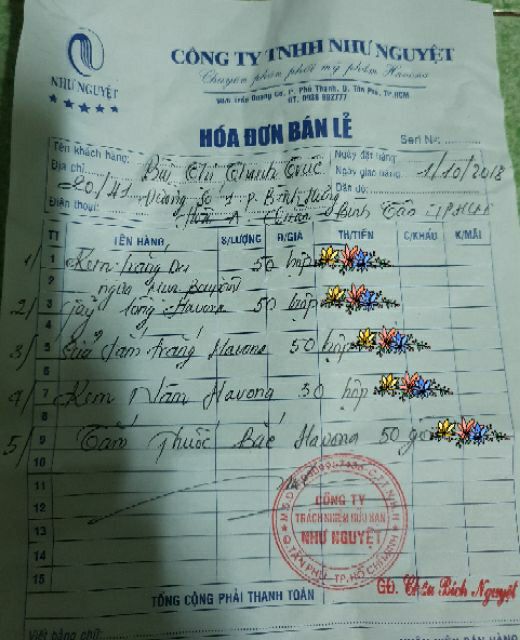 NHƯ NGUYỆT
CÔNG TY TNHH NHƯ NGUYỆT
Chuyên phân phối mỹ phẩm Havona
HÓA ĐƠN BÁN LẺ
Seri No:
Tên khách hàng: Bùi Thị Thanh Trúc
Ngày đặt hàng:
Địa chỉ: 20/41 Đường Số 1 P. Bình Hưng
Ngày giao hàng: 1/10/2018
Hòa A Quận Bình Tân TPHCM
Dẫn độ:
Điện thoại:
TT TÊN HÀNG S/LƯỢNG Đ/GIÁ TH/TIỀN C/KHẤU K/MÃI
1/ 1 Kem trắng da 50 hộp
2 ngừa
2/ 3 Tẩy lông Havona 50 hộp
4
3/ 5 Sữa tắm trắng Havona 50 hộp
6
4/ 7 Kem Nám Havona 30 hộp
8
5/ 9 Tắm Thuốc Bắc Havona 50
10
11
12
13
14
15
CÔNG TY
TRÁCH NHIỆM HỮU HẠN
NHƯ NGUYỆT
Q TÂN PHÚ - TP. HỒ CHÍ MINH
TỔNG CỘNG PHẢI THANH TOÁN
GĐ. Châu Bích Nguyệt
Viết bằng chữ: